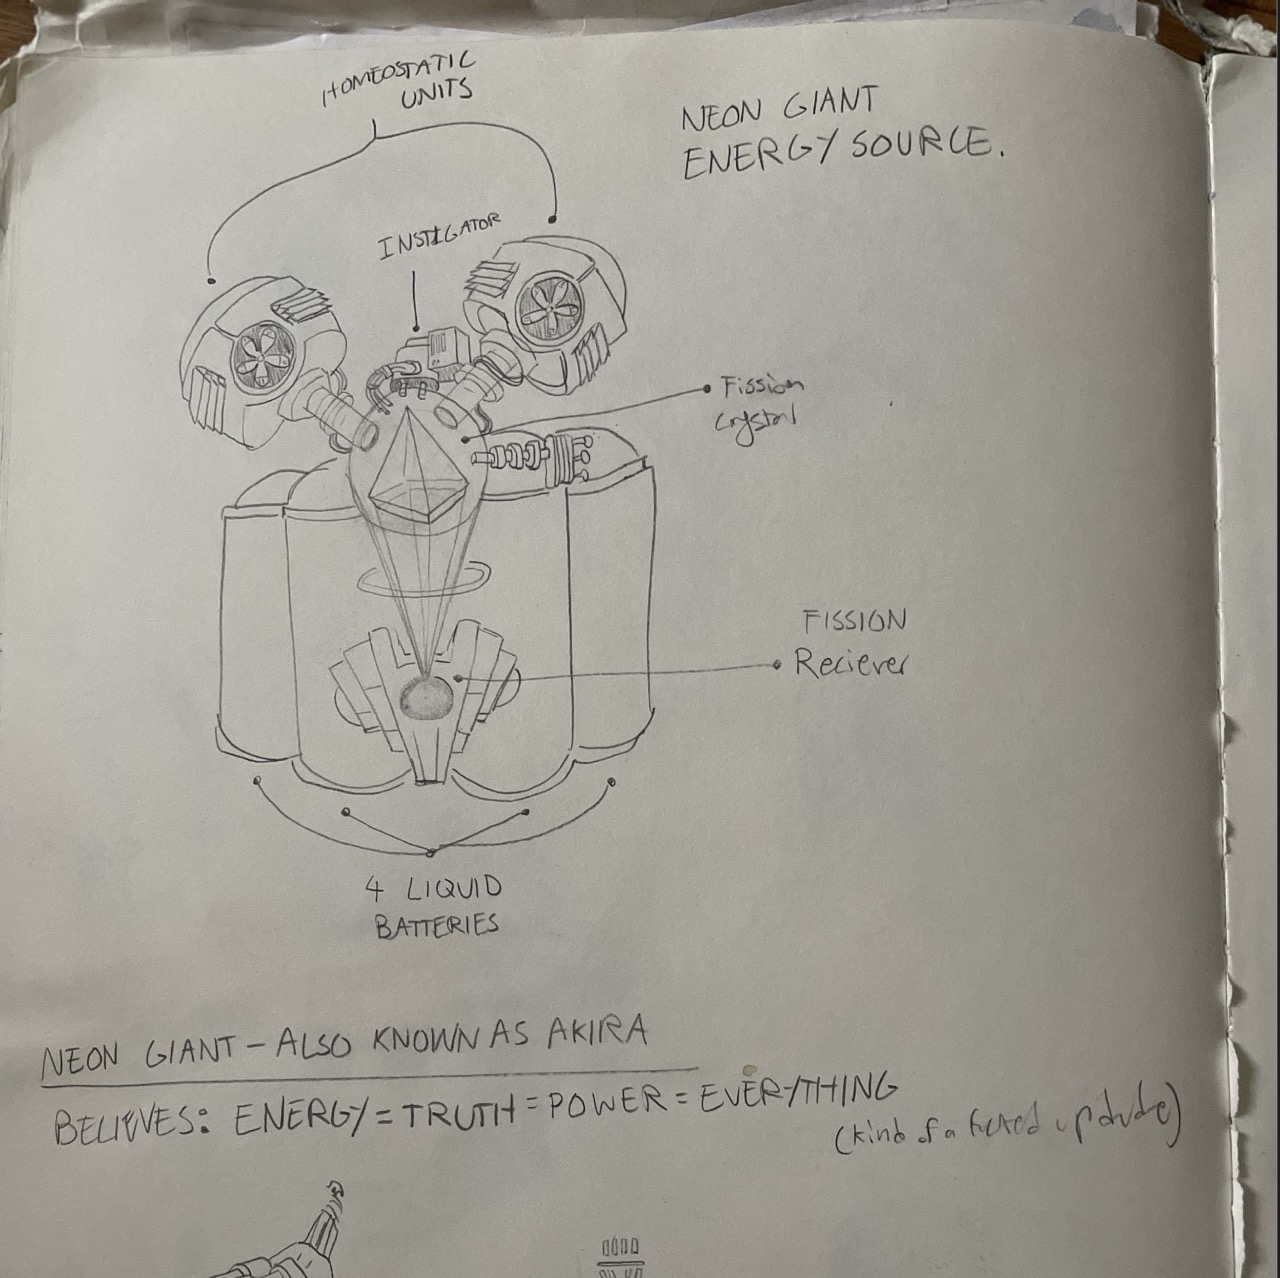 HOMEOSTATIC
UNITS
NEON GIANT
ENERGY SOURCE.
INSTIGATOR
Fission
Crystal
FISSION
Reciever
4 LIQUID
BATTERIES
NEON GIANT - ALSO KNOWN AS AKIRA
BELIEVES: ENERGY = TRUTH = POWER = EVERYTHING
(kind of a fucked up dude)